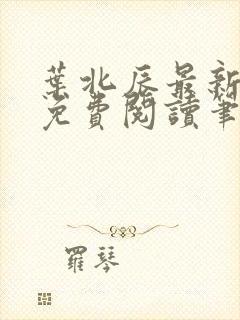 葉北辰最新
免費閱讀筆
羅琴